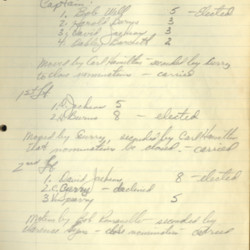 Captain
1. Bob Wolf 5 - Elected
2. Harold Burns 3
3. David Jackson 3
4. Bobby Burdett 2
Moved by Carl Hamilton - seconded by Berry
to close nominations - carried
1st Lt
1. Jackson 5
2. Burns 8 - elected
Moved by Berry, seconded by Carl Hamilton
that nominations be closed - carried
2nd Lt
1. David Jackson 8 - elected
2. Berry - declined
3. Sperry 5
Motion by Bob - seconded by
Clarence - close nomination -